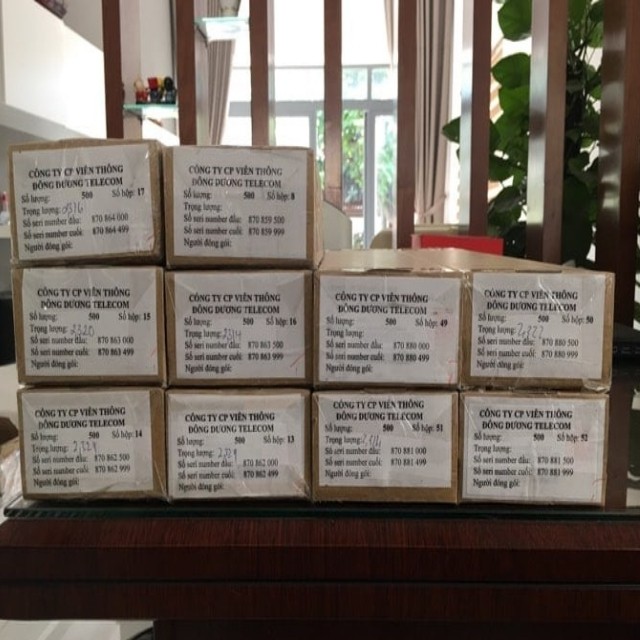 CÔNG TY CP VIỄN THÔNG
ĐÔNG DƯƠNG TELECOM
Số lượng: 500 Số hộp: 17
Trọng lượng:
Số seri number đầu: 870 864 000
Số seri number cuối: 870 864 499
Người đóng gói:
CÔNG TY CP VIỄN THÔNG
ĐÔNG DƯƠNG TELECOM
Số lượng: 500 Số hộp: 8
Trọng lượng:
Số seri number đầu: 870 859 500
Số seri number cuối: 870 859 999
Người đóng gói:
CÔNG TY CP VIỄN THÔNG
ĐÔNG DƯƠNG TELECOM
Số lượng: 500 Số hộp: 15
Trọng lượng: 2320
Số seri number đầu: 870 863 000
Số seri number cuối: 870 863 499
Người đóng gói:
CÔNG TY CP VIỄN THÔNG
ĐÔNG DƯƠNG TELECOM
Số lượng: 500 Số hộp: 16
Trọng lượng:
Số seri number đầu: 870 863 500
Số seri number cuối: 870 863 999
Người đóng gói:
CÔNG TY CP VIỄN THÔNG
ĐÔNG DƯƠNG TELECOM
Số lượng: 500 Số hộp: 49
Trọng lượng:
Số seri number đầu: 870 880 000
Số seri number cuối: 870 880 499
Người đóng gói:
CÔNG TY CP VIỄN THÔNG
ĐÔNG DƯƠNG TELECOM
Số lượng: 500 Số hộp: 50
Trọng lượng:
Số seri number đầu: 870 880 500
Số seri number cuối: 870 880 999
Người đóng gói:
CÔNG TY CP VIỄN THÔNG
ĐÔNG DƯƠNG TELECOM
Số lượng: 500 Số hộp: 14
Trọng lượng:
Số seri number đầu: 870 862 500
Số seri number cuối: 870 862 999
Người đóng gói:
CÔNG TY CP VIỄN THÔNG
ĐÔNG DƯƠNG TELECOM
Số lượng: 500 Số hộp: 13
Trọng lượng:
Số seri number đầu: 870 862 000
Số seri number cuối: 870 862 499
Người đóng gói:
CÔNG TY CP VIỄN THÔNG
ĐÔNG DƯƠNG TELECOM
Số lượng: 500 Số hộp: 51
Trọng lượng:
Số seri number đầu: 870 881 000
Số seri number cuối: 870 881 499
Người đóng gói:
CÔNG TY CP VIỄN THÔNG
ĐÔNG DƯƠNG TELECOM
Số lượng: 500 Số hộp: 52
Trọng lượng:
Số seri number đầu: 870 881 500
Số seri number cuối: 870 881 999
Người đóng gói: